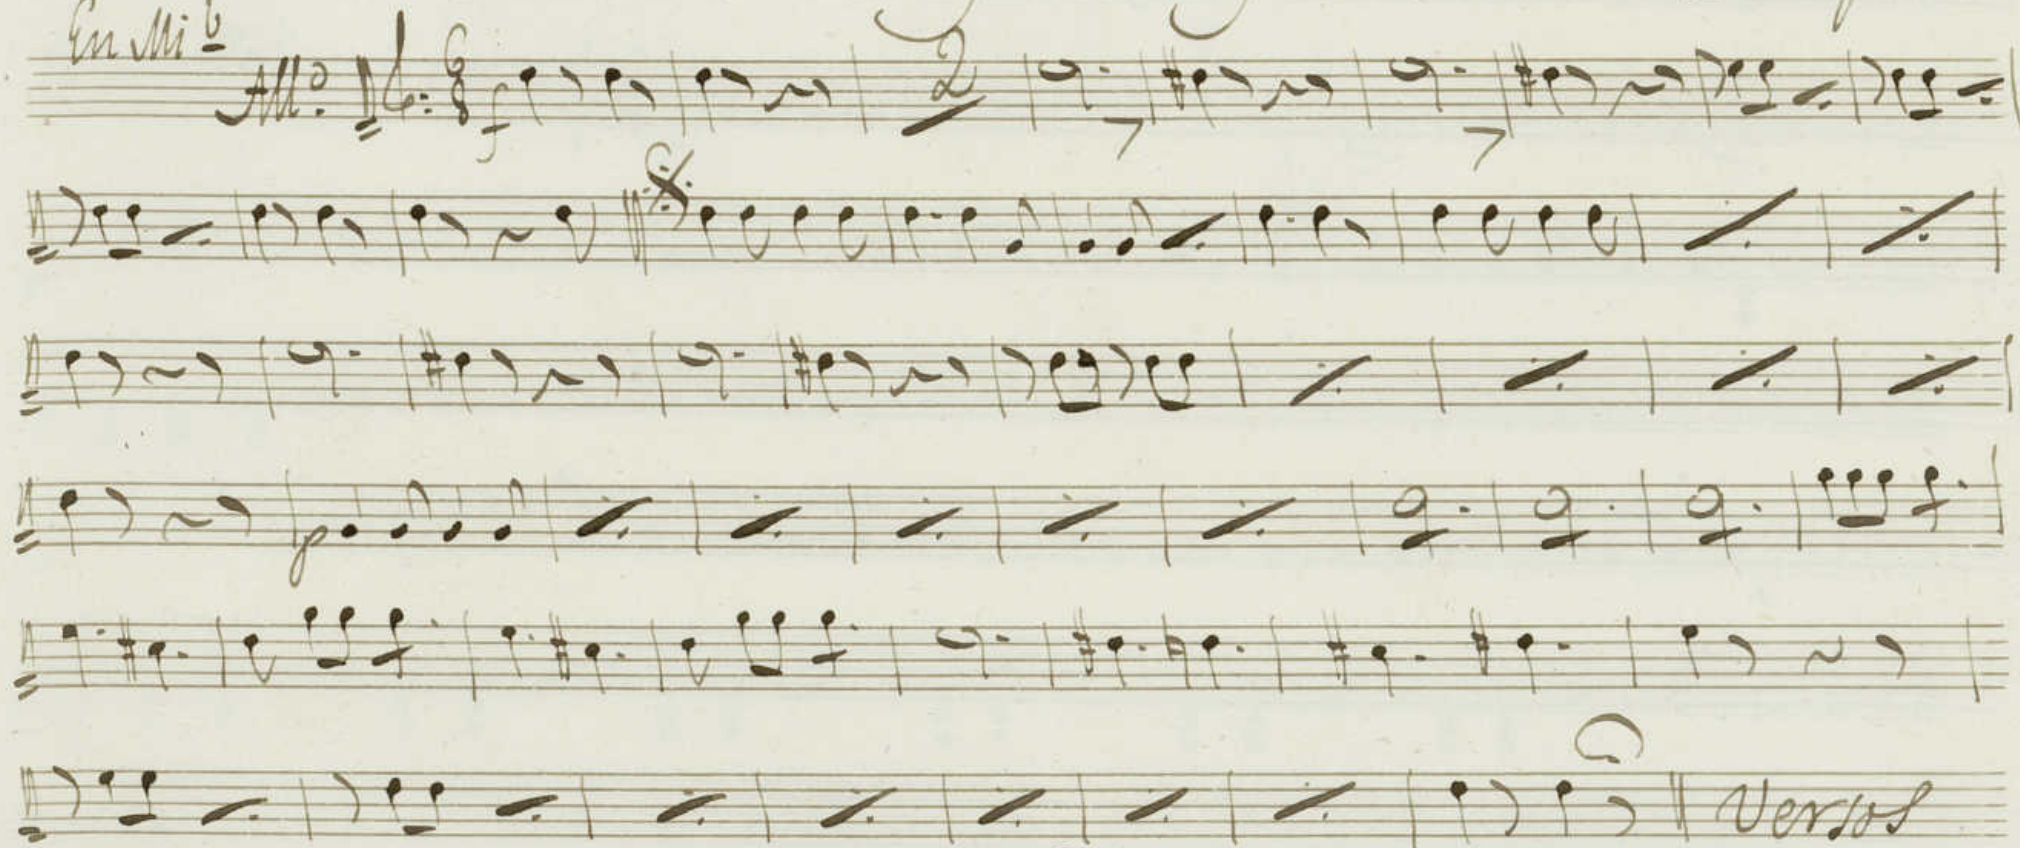 En Mi b
All.o 6 8 f 2
p
Versos